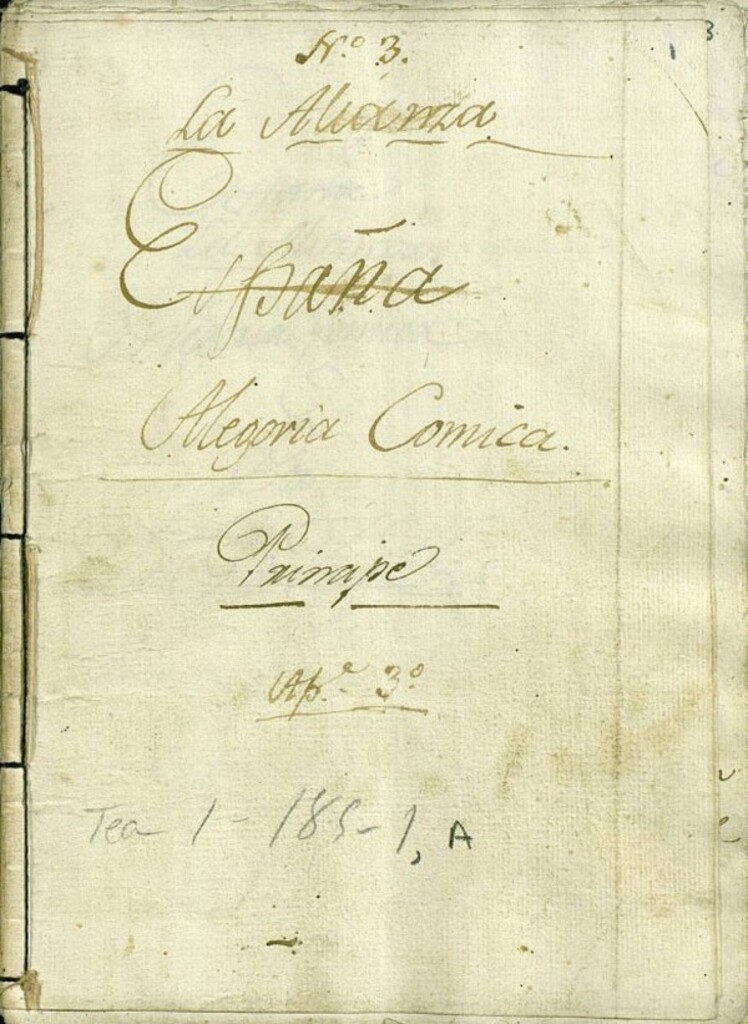 Nº 3.
3
1
La Alianza
España
Alegoria Comica.
Principe
Ap.e 3º
Tea 1-185-1, A